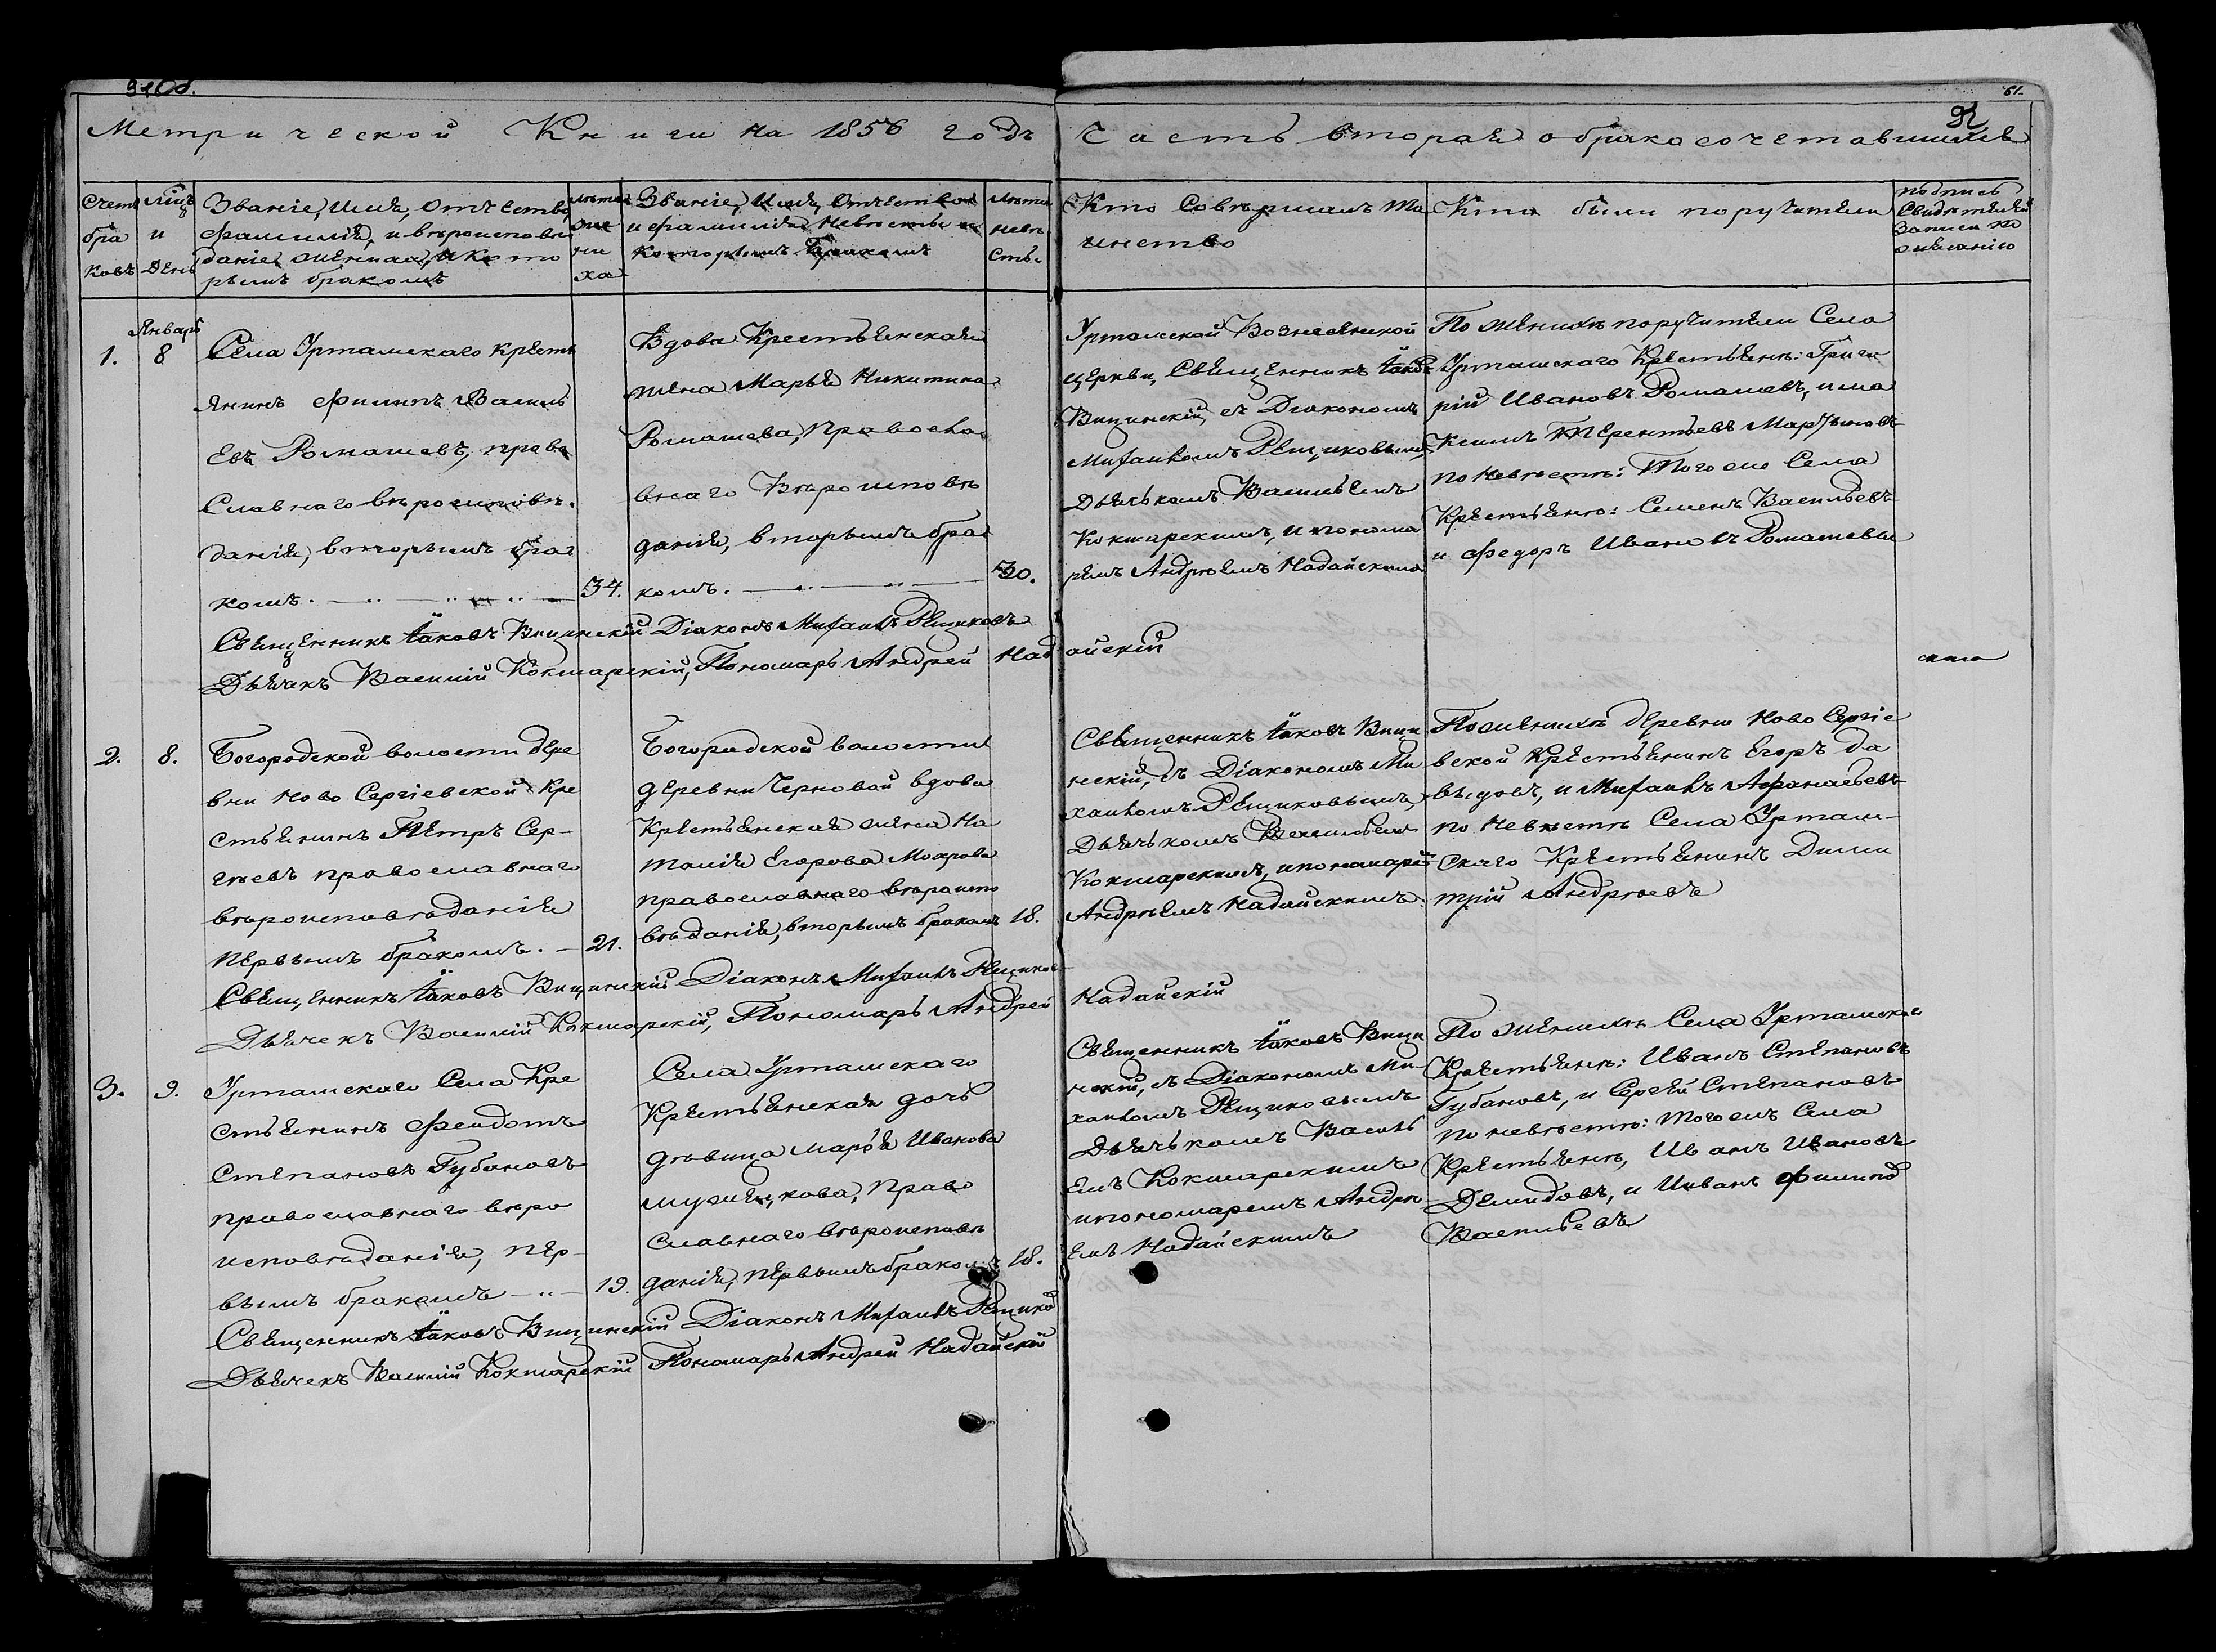 Метрической Книги на 1856 годъ
Часть вторая о бракосочетавшихся
61.
Счетъ браковъ
Мцъ и День
Званіе, Имя, Отчество,
фамилія, и вѣроисповѣ
даніе жениха, и кото
рымъ бракомъ
Лѣта же ни ха
Званіе, Имя, Отчество
и фамилія Невѣсты и
которымъ бракомъ
Лѣта невѣ сты
Кто Совѣршалъ Та
инство
Кто были поручители
подпись
Свидѣтелей
Записи по
желанію
1.
Январь
8
Села Уртамскаго Кресть
янинъ Филипъ Василь
евъ Ромашевъ, право
Славнаго вѣроисповѣ.
данія, вторымъ бра
комъ.
34.
Вдова Крестьянская
жена Марья Никитина
Ромашева, Правосла
внаго Вѣроисповѣ
данія, вторымъ бра
комъ.
30.
Уртамской Вознесенской
церкви, Священникъ Іаковъ
Вицинскій, съ Діакономъ
Михаиломъ Рещиковымъ,
Дьячькомъ Васильемъ
Кокшарскимъ, и понома
ремъ Андрѣемъ Надайскимъ
По женихѣ поручители Села
Уртамскаго Крестьяне: Григо
рій Ивановъ Ромашевъ, и Ма
ксимъ Терентьевъ Мартыновъ
по невѣстѣ: Того же Села
Крестьяне: Семенъ Васильевъ
и Федоръ Ивановъ Ромашевы
Священникъ Іаковъ Вицинскій Діаконъ Михаилъ Рещиковъ
Дьячекъ Василій Кокшарскій, Пономарь Андрей Надайскій
2.
8.
Богородской волости дере
вни Ново Сергіевской Кре
стьянинъ Петръ Сер-
гѣевъ православнаго
вѣроисповѣданія
первымъ бракомъ.
21.
Богородской волости
деревни Черновой вдова
Крестьянская жена На
талія Егорова Мокрова
православнаго вѣроиспо
вѣданія, вторымъ бракомъ
18.
Священникъ Іаковъ Вици
нскій, съ Діакономъ Ми
хаиломъ Рещиковымъ,
Дьячькомъ Васильемъ
Кокшарскимъ, и пономаремъ
Андрѣемъ Надайскимъ
По женихѣ деревни Ново Сергіе
вской Крестьянинъ Егоръ Да
выдовъ, и Михаилъ Афанасьевъ
по Невѣстѣ Села Уртам-
скаго Крестьянинъ Дими
трій Андрѣевъ
Священникъ Іаковъ Вицинскій Діаконъ Михаилъ Рещиковъ
Дьячекъ Василій Кокшарскій, Пономарь Андрей Надайскій
3.
9.
Уртамскаго Села Кре
стьянинъ Феидотъ
Степановъ Губановъ
православнаго вѣро
исповѣданія, пер-
вымъ бракомъ
19.
Села Уртамскаго
Крестьянская дочь
дѣвица Марья Иванова
православнаго вѣроисповѣ
данія, первымъ бракомъ
18.
Священникъ Іаковъ Вици
нскій, съ Діакономъ Ми-
хаиломъ Рещиковымъ
Дьячькомъ Василь
емъ Кокшарскимъ
и пономаремъ Андрѣ
емъ Надайскимъ
По женихѣ Села Уртамскаго
Крестьяне: Иванъ Степановъ
Губановъ, и Сергѣй Степановъ
по невѣстѣ: тогожъ Села
Крестьяне, Иванъ Ивановъ
Демидовъ, и Иванъ Филипо
Васильевъ
Священникъ Іаковъ Вицинскій Діаконъ Михаилъ Рещиковъ
Дьячекъ Василій Кокшарскій Пономарь Андрей Надайскій